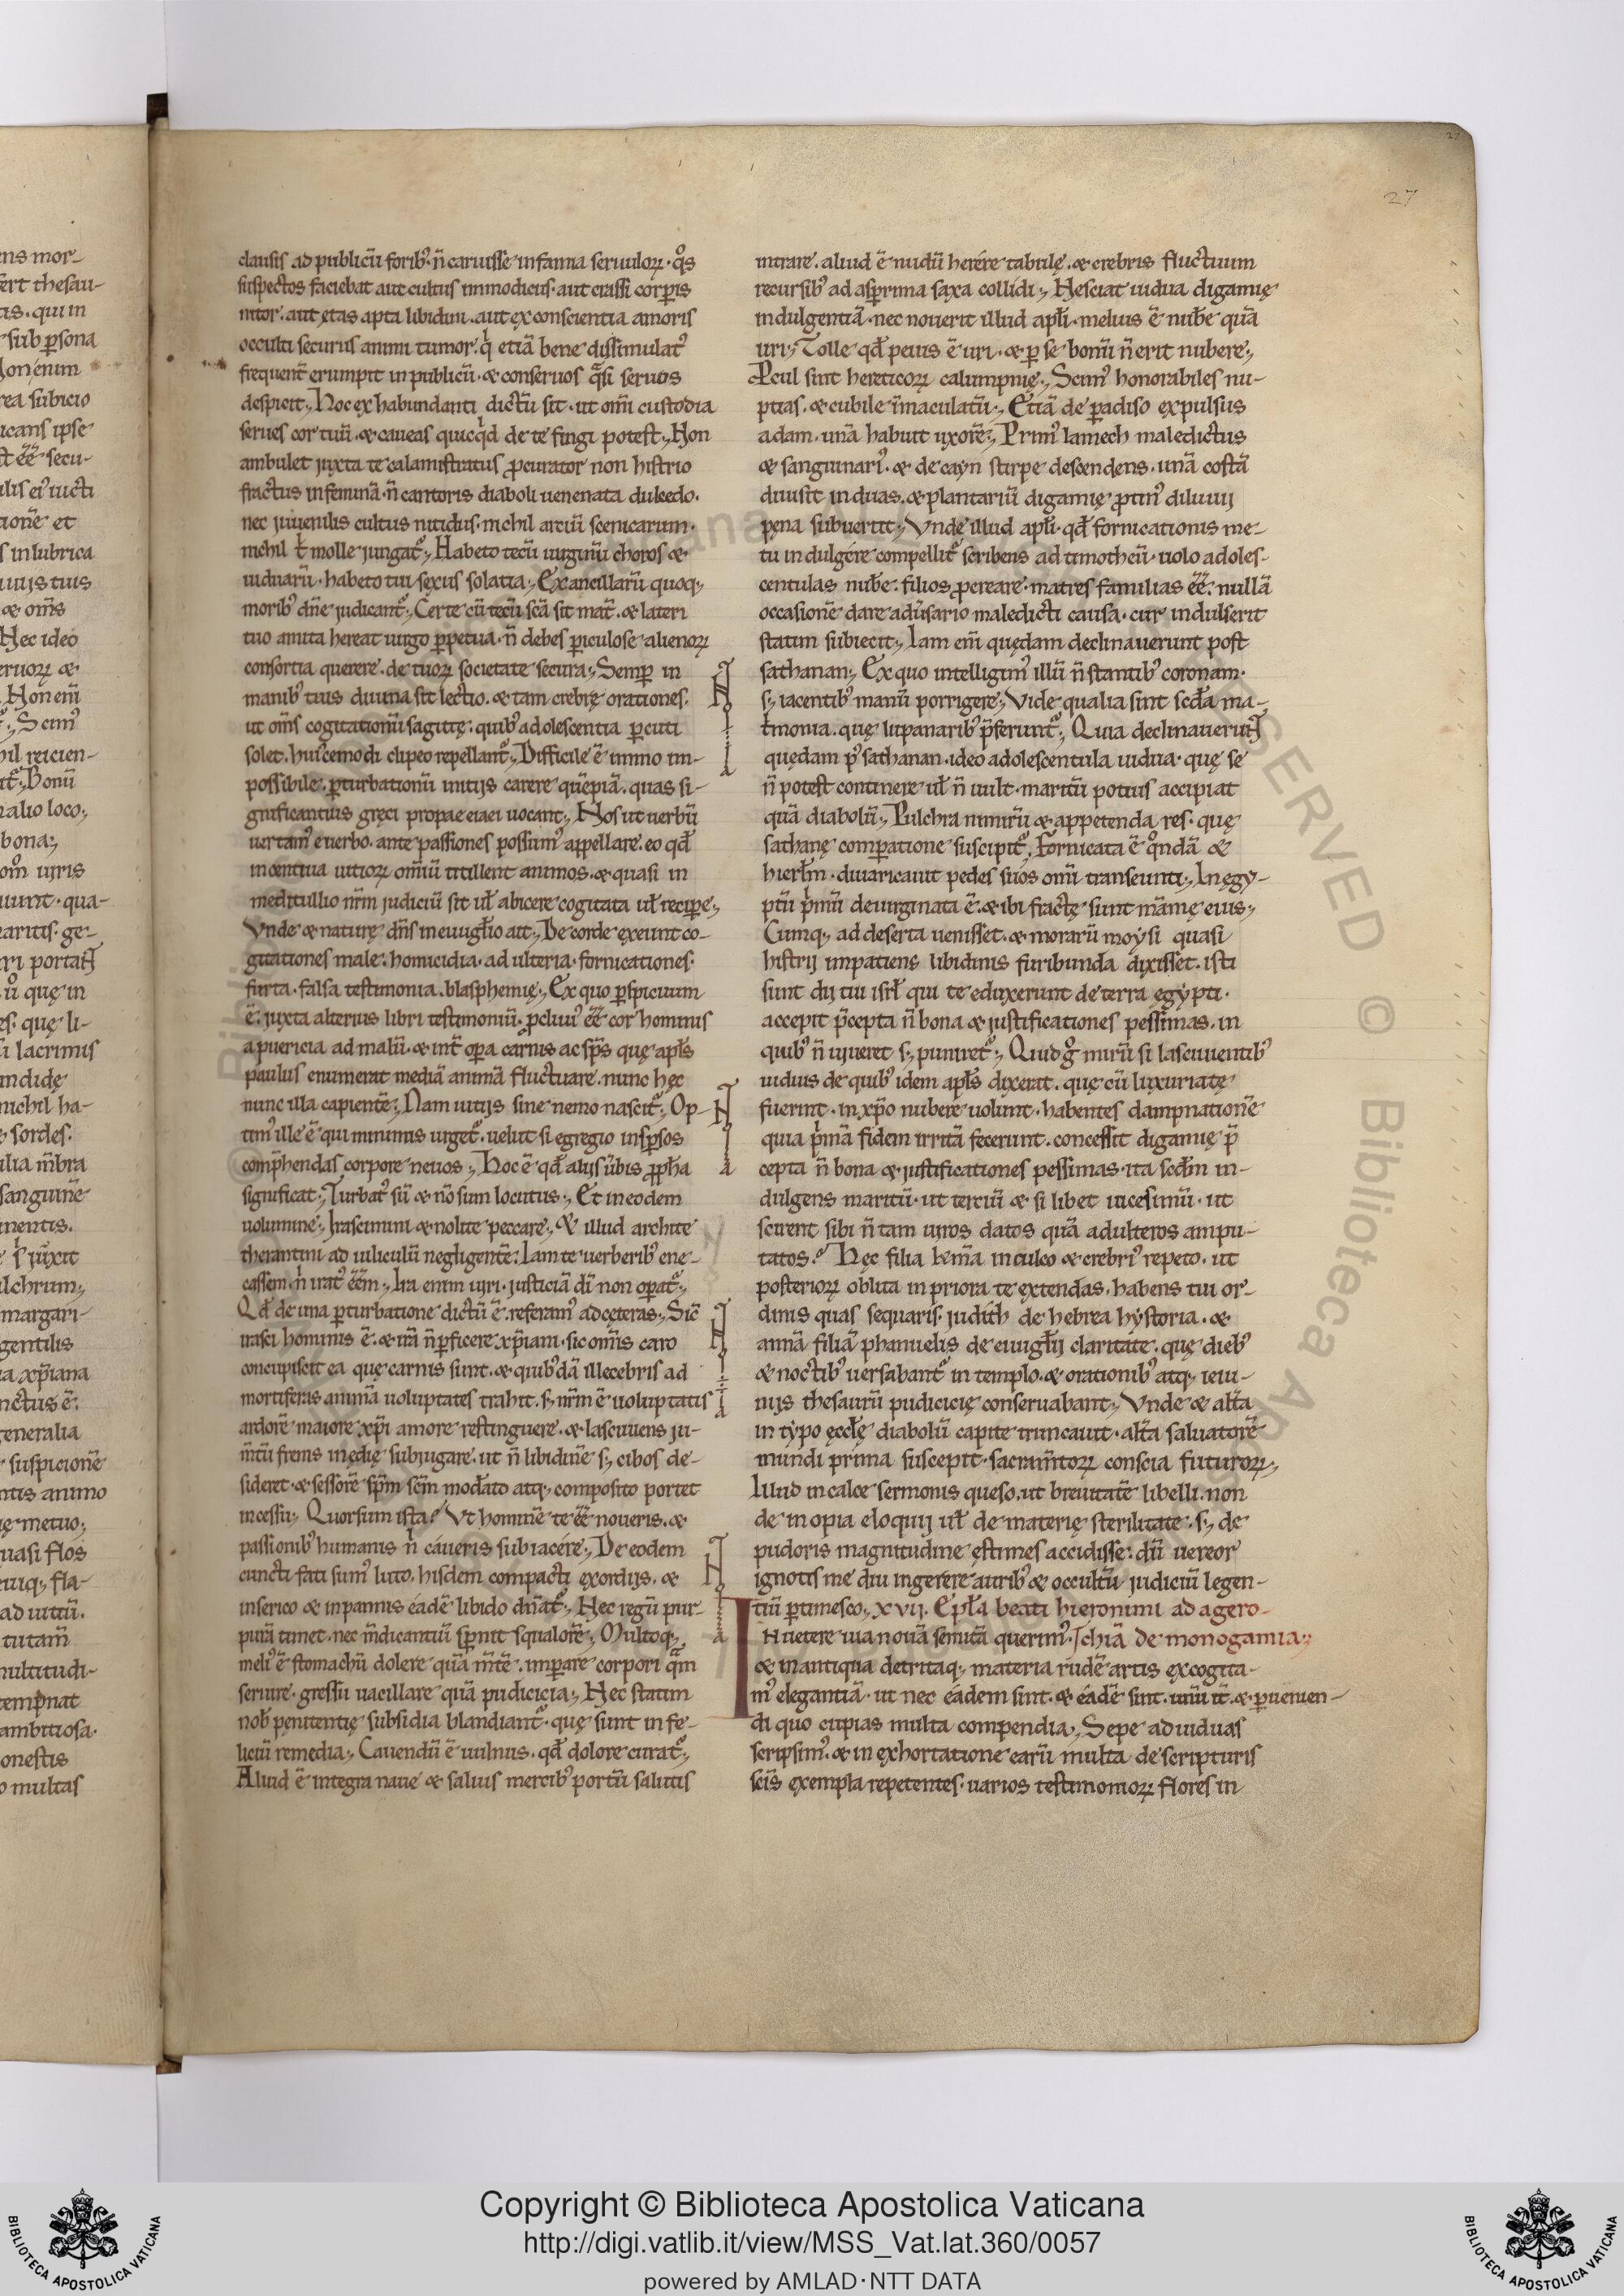 27
clausis ad publicū forib᷒. n̄ caruisse infamia seruulorꝝ. qͦs
suspectos faciebat aut cultus immodicus. aut crassi corꝑis
nitor. aut ętas apta libidini. aut ex conscientia amoris
occulti securus animi tumor. qͥ etiā bene dissimulat᷒
frequent̄ erumpit in publicū. & conseruos qᷓsi seruos
despicit. Hoc ex habundanti dictū sit. ut om̄i custodia
serues cor tuū. & caueas quicqͥd de te fingi potest. Non
ambulet juxta te calamistratus ꝓcurator non histrio
fractus in feminā. n̄ cantoris diaboli uenenata dulcedo.
nec juuenilis cultus nitidus. nichil artiū scenicarum.
nichil t̄ molle jungat᷑. Habeto tecū uirginū choros &
uiduarū. habeto tui sexus solatia. Ex ancillarū quoq;
morib᷒ dn̄e judicant᷑. Certe cū tecū sc̄a sit mat̄. & lateri
tuo amita hereat uirgo ꝑpetua. n̄ debes ꝑiculose alienorꝝ
consortia querere. de tuorꝝ societate secura. Semꝑ in
manib᷒ tuis diuina sit lectio. & tam crebrę orationes.
ut om̄s cogitationū sagittę. quib᷒ adolescentia ꝑcuti
solet. huicemodi clipeo repellant᷑. Difficile ē immo im-
possibile. ꝑturbationū initijs carere quēpiā. quas si-
gnificantius gręci propaeeiaei uocant. Nos ut uerbū
uertam᷒ e uerbo. ante passiones possum᷒ appellare. eo qđ
incentiua uitiorꝝ om̄iū titillent animos. & quasi in
meditullio nr̄m judiciū sit uł abicere cogitata uł reciꝑe.
Vnde & naturę dn̄s in euuḡlio ait. De corde exeunt co-
gitationes male. homicidia. adulteria. fornicationes.
furta. falsa testimonia. blasphemię. Ex quo ꝑspicuum
ē. juxta alterius libri testimoniū. ꝓcliui᷒ ēē cor hominis
a puericia ad malū. & int̄ oꝑa carnis ac sp̄s quę apl̄s
paulus enumerat mediā animā fluctuare. nunc hęc
nunc illa capientē. Nam uitijs sine nemo nascit᷑. Op-
tim᷒ ille ē qui minimis urget᷑. uelut si egregio insꝑsos
comp̄hendas corpore neuos. Hoc ē qđ alijs ūbis ꝓph̄a
significat. Turbat᷒ sū & nō sum locutus. Et in eodem
uolumine. Irascimini & nolite peccare. & illud archite
therantini ad uiliculū negligentē. Iam te uerberib᷒ ene-
cassem. nͥ irat᷒ ēēm. Ira enim uiri. justiciā dī non oꝑat᷑.
Qđ de una ꝑturbatione dictū ē. referam᷒ ad cęteras. Sic̄
irasci hominis ē. & irā n̄ ꝑficere xp̄iani. sic om̄is caro
concupiscit ea quę carnis sunt. & quib᷒dā illecebris ad
mortiferas animā uoluptates trahit. s; nr̄m ē uoluptatis
ardorē maiore xp̄i amore restinguere. & lasciuiens ju-
m̄tū frenis inędię subjugare. ut n̄ libidinē s; cibos de-
sideret. & sessorē sp̄m sc̄m modato atq; composito portet
incessu. Quorsum ista? Vt hominē te ēē noueris. &
passionib᷒ humanis nͥ caueris subiacere. De eodem
cuncti facti sum᷒ luto. hisdem compacti exordijs. &
in serico & in pannis eadē libido dn̄at᷑. Nec regū pur-
purā timet. nec m̄dicantiū sꝑnit squalorē. Multoq;
meli᷒ ē stomachū dolere quā m̄tē. imꝑare corpori qᷓm
seruire. gressu uacillare quā pudicicia. Nec statim
nob̄ penitentię subsidia blandiant᷑. quę sunt infe-
liciū remedia. Cauendū ē uulnus. qđ dolore curat᷑.
Aliud ē integra naue & saluis mercib᷒ portū salutis
intrare. aliud ē nudū herere tabulę. & crebris fluctuum
recursib᷒ ad asꝑrima saxa collidi. Nesciat uidua digamię
indulgentiā. nec nouerit illud apl̄i. melius ē nub̄e quā
uri. Tolle qđ peius ē uri. & ꝑ se bonū n̄ erit nubere.
Pcul sint hereticorꝝ calumpnię. Scim᷒ honorabiles nu-
ptias. & cubile īmaculatū. Etiā de ꝑadiso expulsus
adam. unā habuit uxorē. Prim᷒ lamech maledictus
& sanguinari᷒. & de cayn stirpe descendens. unā costā
diuisit in duas. & plantariū digamię ꝓtin᷒ diluuij
pęna subuertit. Vnde illud apl̄i. qđ fornicationis me-
tu indulgere compellit᷑ scribens ad timotheū. uolo adoles-
centulas nub̄e. filios ꝓcreare. matres familias ēē. nullā
occasionē dare adūsario maledicti causa. cur indulserit
statim subiecit. Iam em̄ quędam declinauerunt post
sathanan. Ex quo intelligim᷒ illū n̄ stantib᷒ coronam.
s; iacentib᷒ manū porrigere. Vide qualia sint scđa ma-
tͥmonia. quę lupanarib᷒ p̄ferunt᷑. Quia declinauerunt
quędam p᷒ sathanan. ideo adolescentula uidua. quę se
n̄ potest continere uł n̄ uult. maritū potius accipiat
quā diabolū. Pulchra nimirū & appetenda res. quę
sathanę comꝑatione suscipit᷑. Fornicata ē qͦndā &
hierłm. diuaricauit pedes suos om̄i transeunti. In egy-
ptū pͥmū deuirginata ē. & ibi fractę sunt mā̄mę eius.
Cumq; ad deserta uenisset. & morarū moysi quasi
histrij impatiens libidinis furibunda dixisset. isti
sunt dij tui isrł qui te eduxerunt de terra egypti.
accepit p̄cepta n̄ bona & justificationes pessimas. in
quib᷒ n̄ uiueret s; puniret᷑. Quid gͦ mirū si lasciuientib᷒
uiduis de quib᷒ idem apl̄s dixerat. quę cū luxuriatę
fuerint. in xp̄o nubere uolunt. habentes dampnationē
quia pͥmā fidem irritā fecerunt. concessit digamię p̄
cepta n̄ bona & justificationes pessimas. ita scđm in-
dulgens maritū. ut terciū & si libet uicesimū. ut
scirent sibi n̄ tam uiros datos quā adulteros ampu-
tatos. Hęc filia km̄a inculco & crebri᷒ repeto. ut
posteriorꝝ oblita in priora te extendas. habens tui or-
dinis quas sequaris. judith de hebrea hystoria. &
annā filiā phanuelis de euuḡlij claritate. quę dieb᷒
& noctib᷒ uersabant᷑ in templo. & orationib᷒ atq; ieiu-
nijs thesaurū pudicicię conseruabant. Vnde & alt̄a
in typo ęccłę diabolū capite truncauit. alt̄a saluatorē
mundi prima suscepit. sacram̄torꝝ conscia futurorꝝ.
Illud in calce sermonis queso. ut breuitatē libelli. non
de inopia eloquij uł de materię sterilitate. s; de
pudoris magnitudine ęstimes accidisse. dū uereor
ignotis me diu ingerere aurib᷒ & occultū judiciū legen-
tiū ꝑtimesco. xvij. Epła beati hieronimi ad agero-
In uetere uia nouā semitā querim᷒. chiā de monogamia.
& in antiqua detritaq; materia rudē artis excogita-
m᷒ elegantiā. ut nec eadem sint. & eadē sint. unū it̄. & ꝑuenien-
di quo cupias multa compendia. Sepe ad uiduas
scripsim᷒. & in exhortatione earū multa de scripturis
sc̄is exempla repetentes. uarios testimoniorꝝ flores in
Copyright © Biblioteca Apostolica Vaticana
http://digi.vatlib.it/view/MSS_Vat.lat.360/0057
powered by AMLAD·NTT DATA